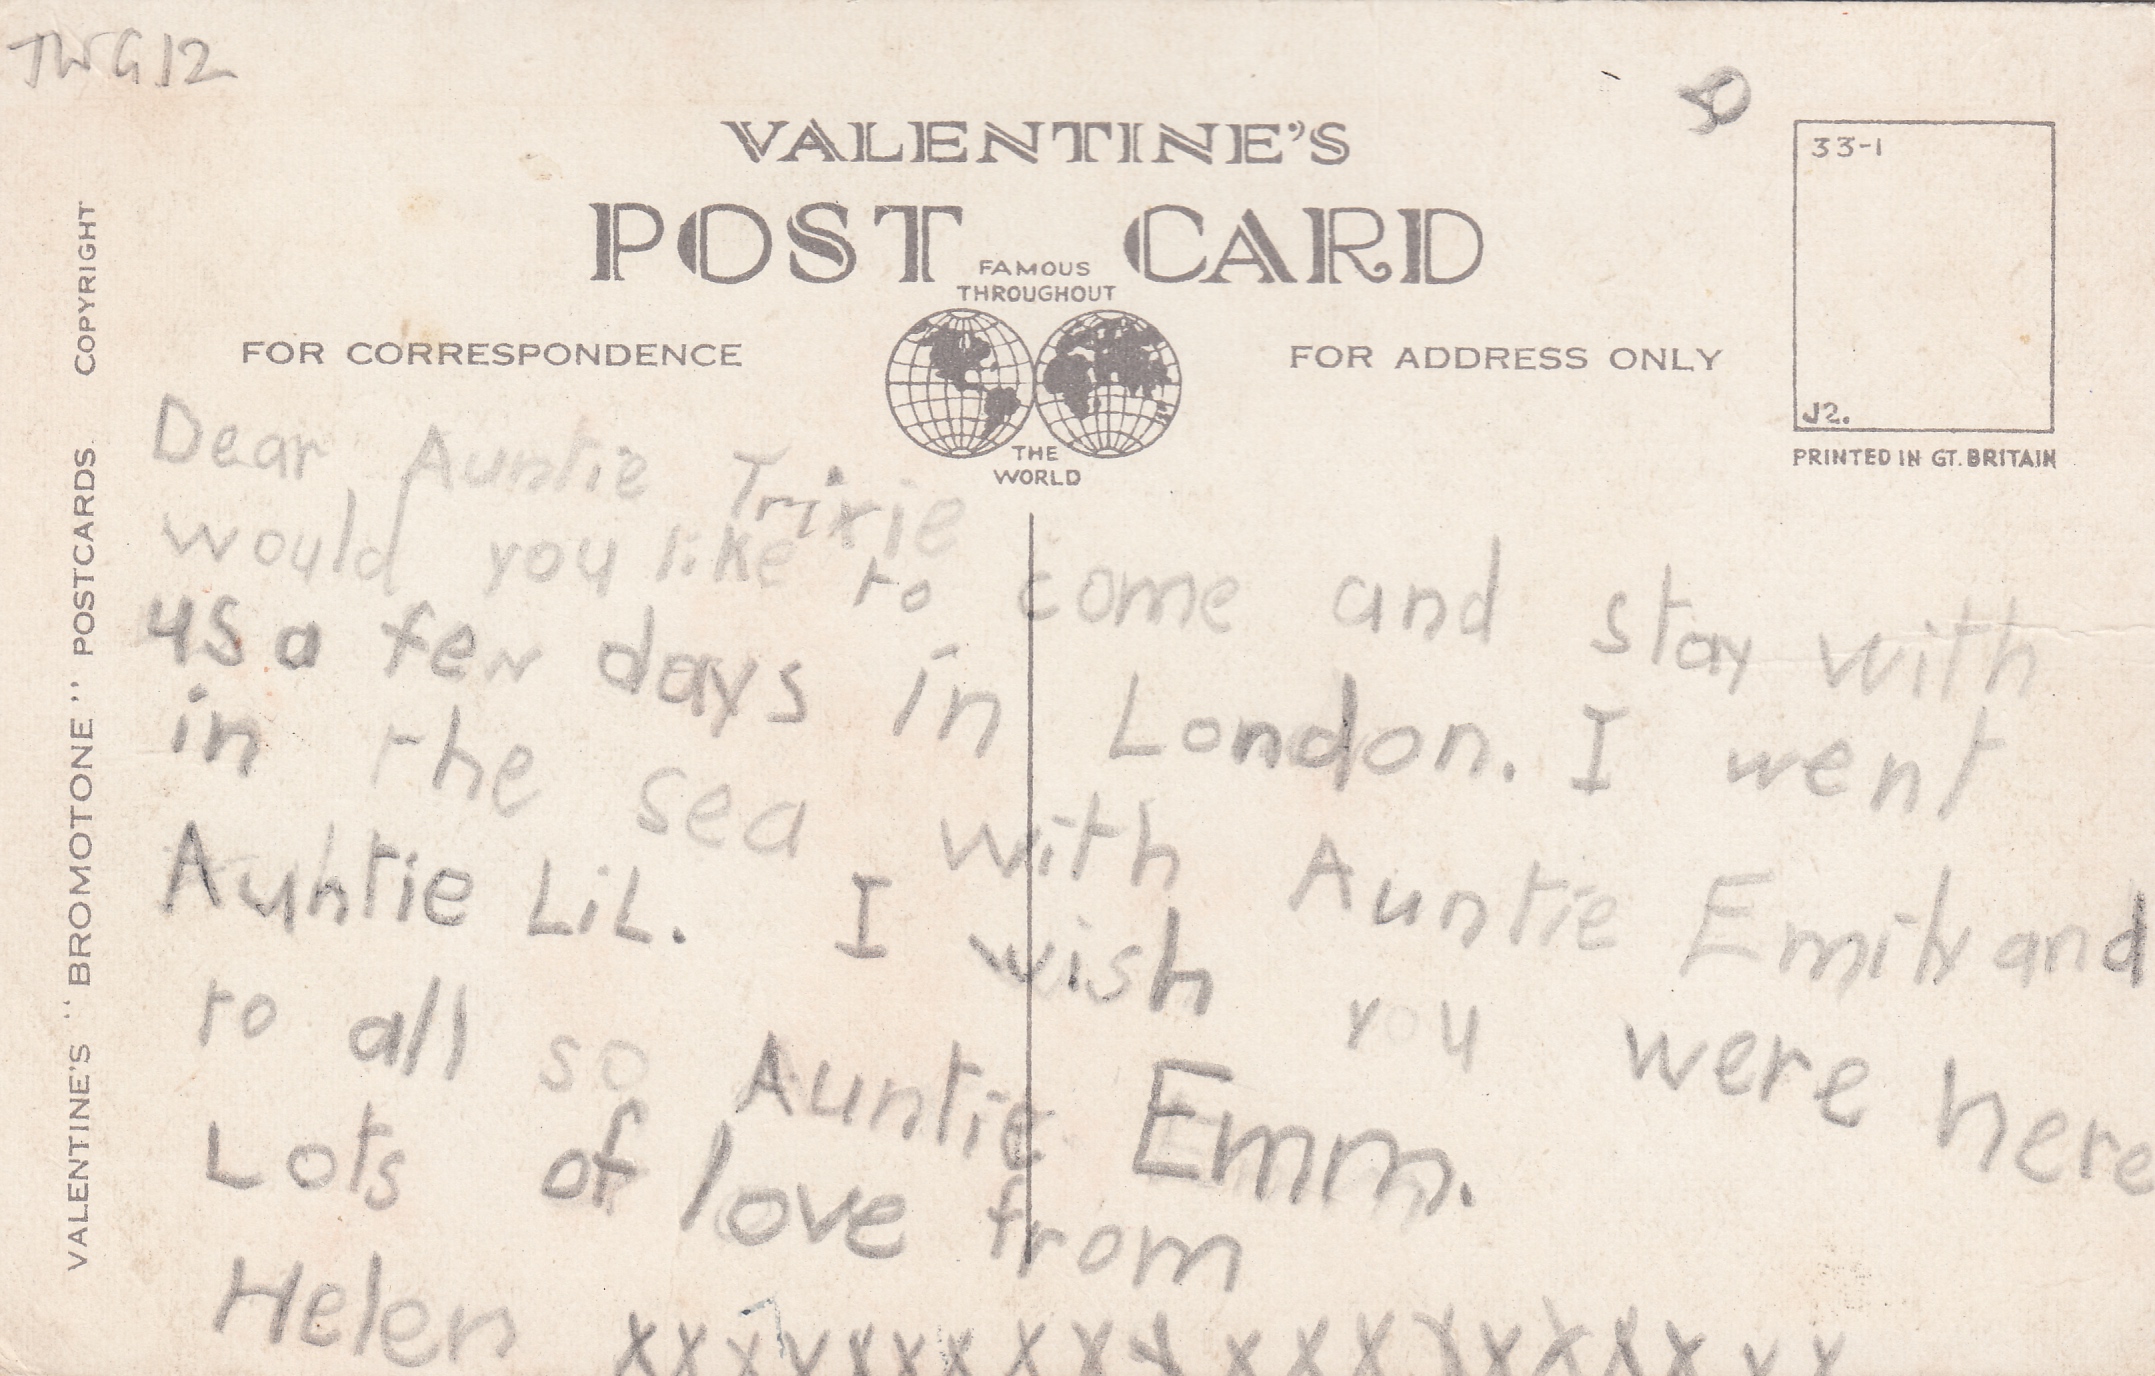 TWG12
50
VALENTINE'S
POST CARD
FAMOUS
THROUGHOUT
THE
WORLD
FOR CORRESPONDENCE
FOR ADDRESS ONLY
33-1
J2.
PRINTED IN GT. BRITAIN
VALENTINE'S "BROMOTONE" POSTCARDS COPYRIGHT
Dear Auntie Trixie
would you like to come and stay with
us a few days in London. I went
in the sea with Auntie Emily and
Auntie LiL. I wish you were here
to all so Auntie Emm.
Lots of love from
Helen xxxxxxxxxxxxxxxxxxxxx